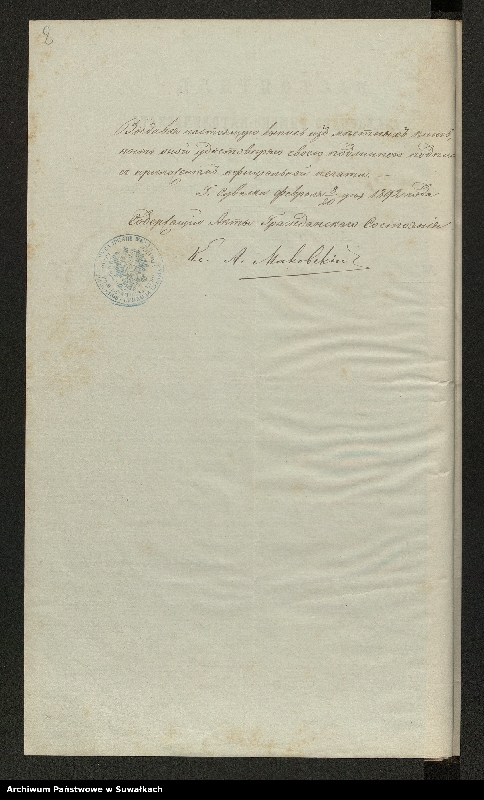 2
Выдавая настоящую выпись изъ местныхъ книгъ,
оной удостоверяю своею подписью
и приложениемъ оффициальной печати. -
Г. Сувалки Февраля 8/20 дня 1892 года
Содержащій Акты Гражданскаго Состоянія
Кс. А. Маковскій
Archiwum Państwowe w Suwałkach